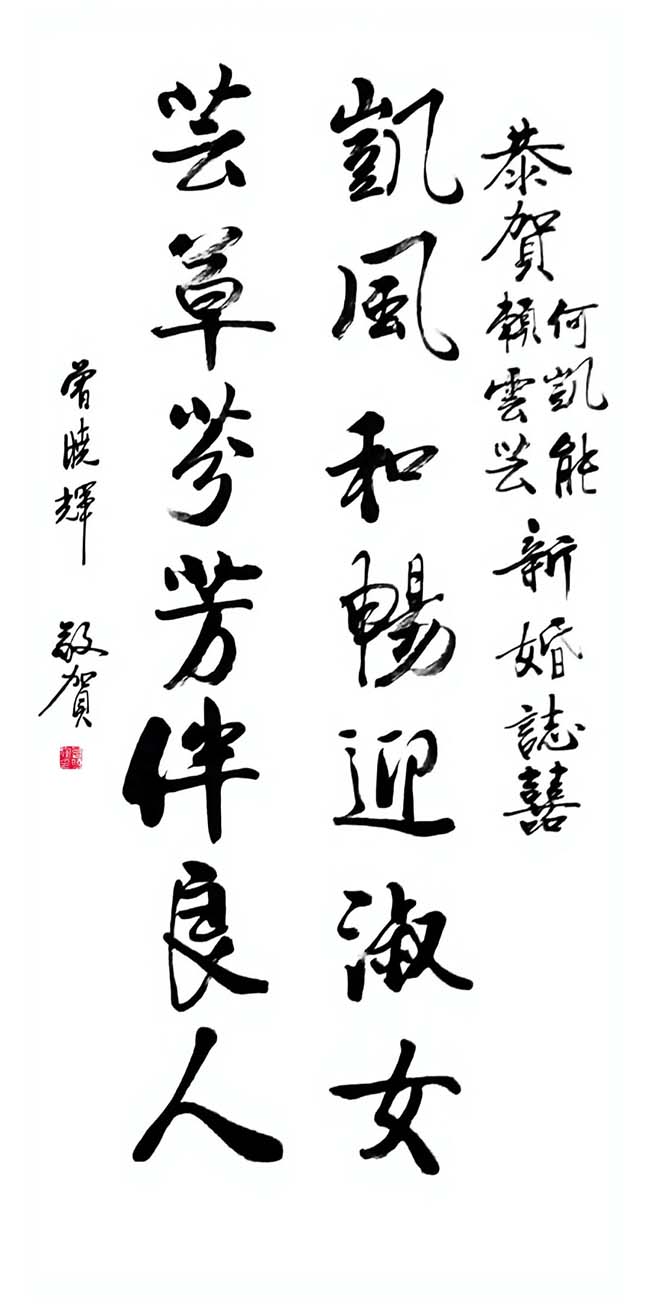 恭賀何凱能賴雲芸新婚誌囍
凱風和暢迎淑女
芸草芬芳伴良人
曾曉輝 敬賀